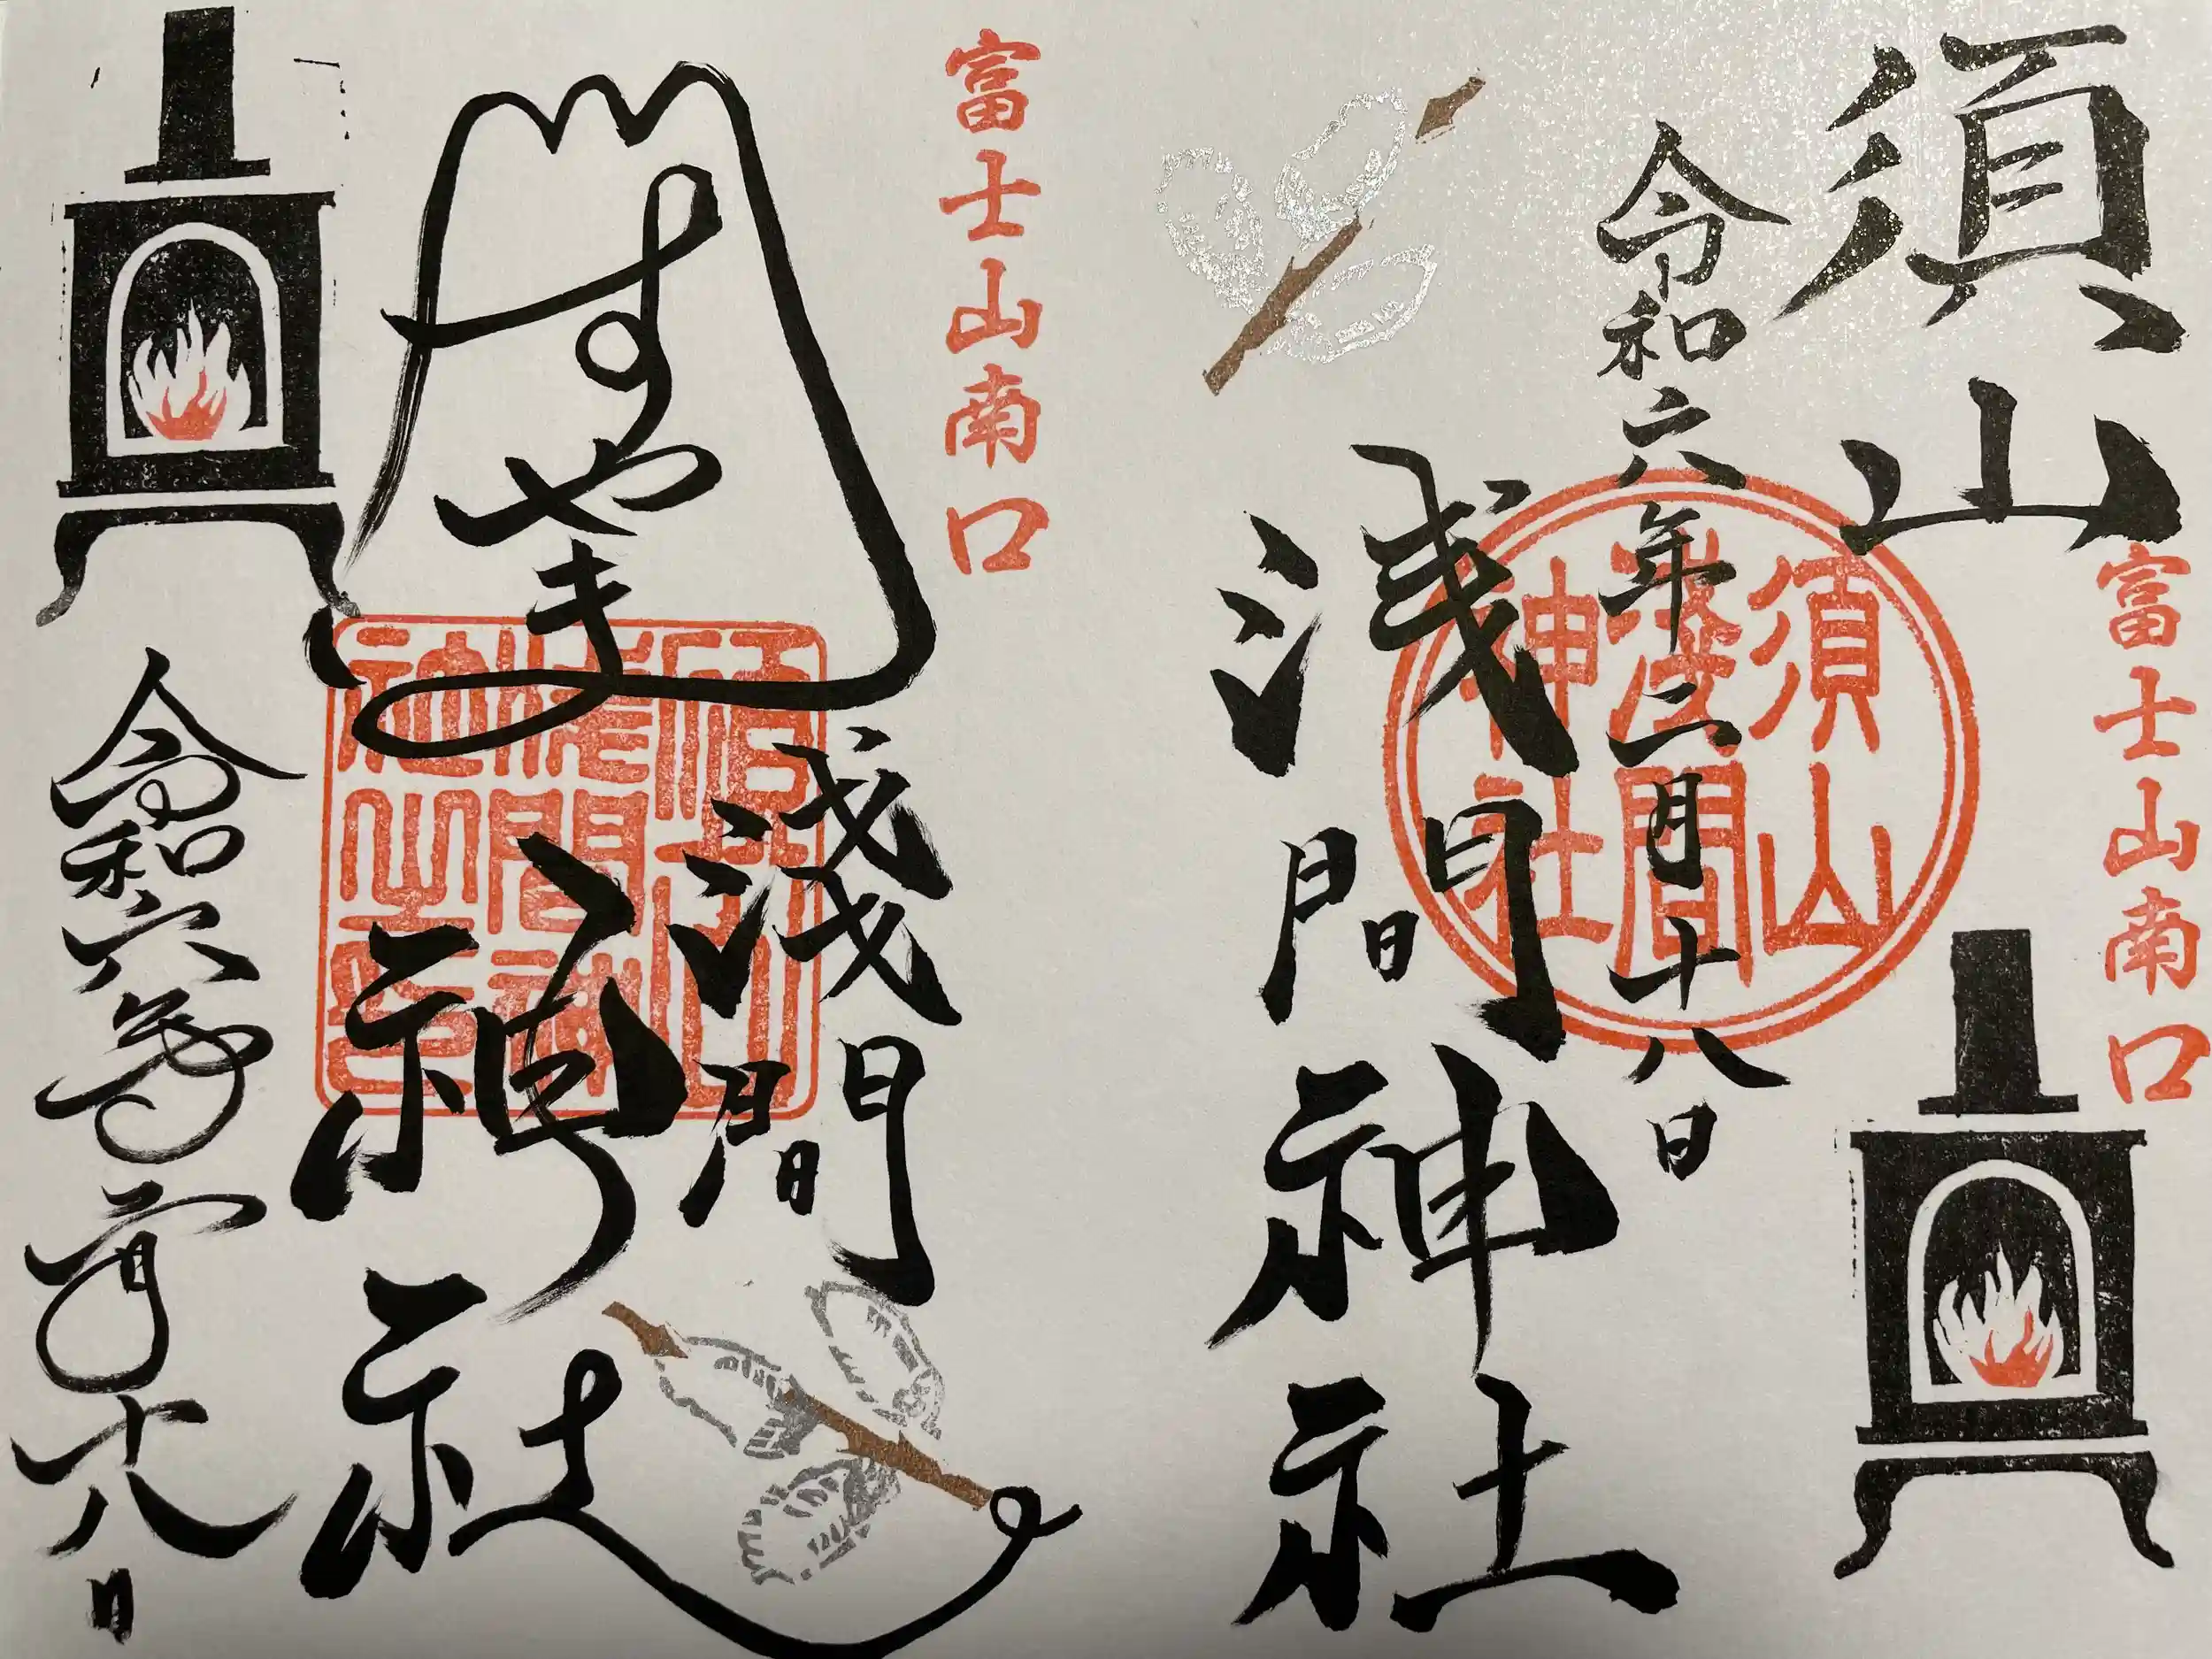 須山
富士山南口
令和六年二月十八日
浅間神社
須山
淺間
神社
富士山南口
すやま
淺間
神社
間神
社之印
令和六年二月十八日